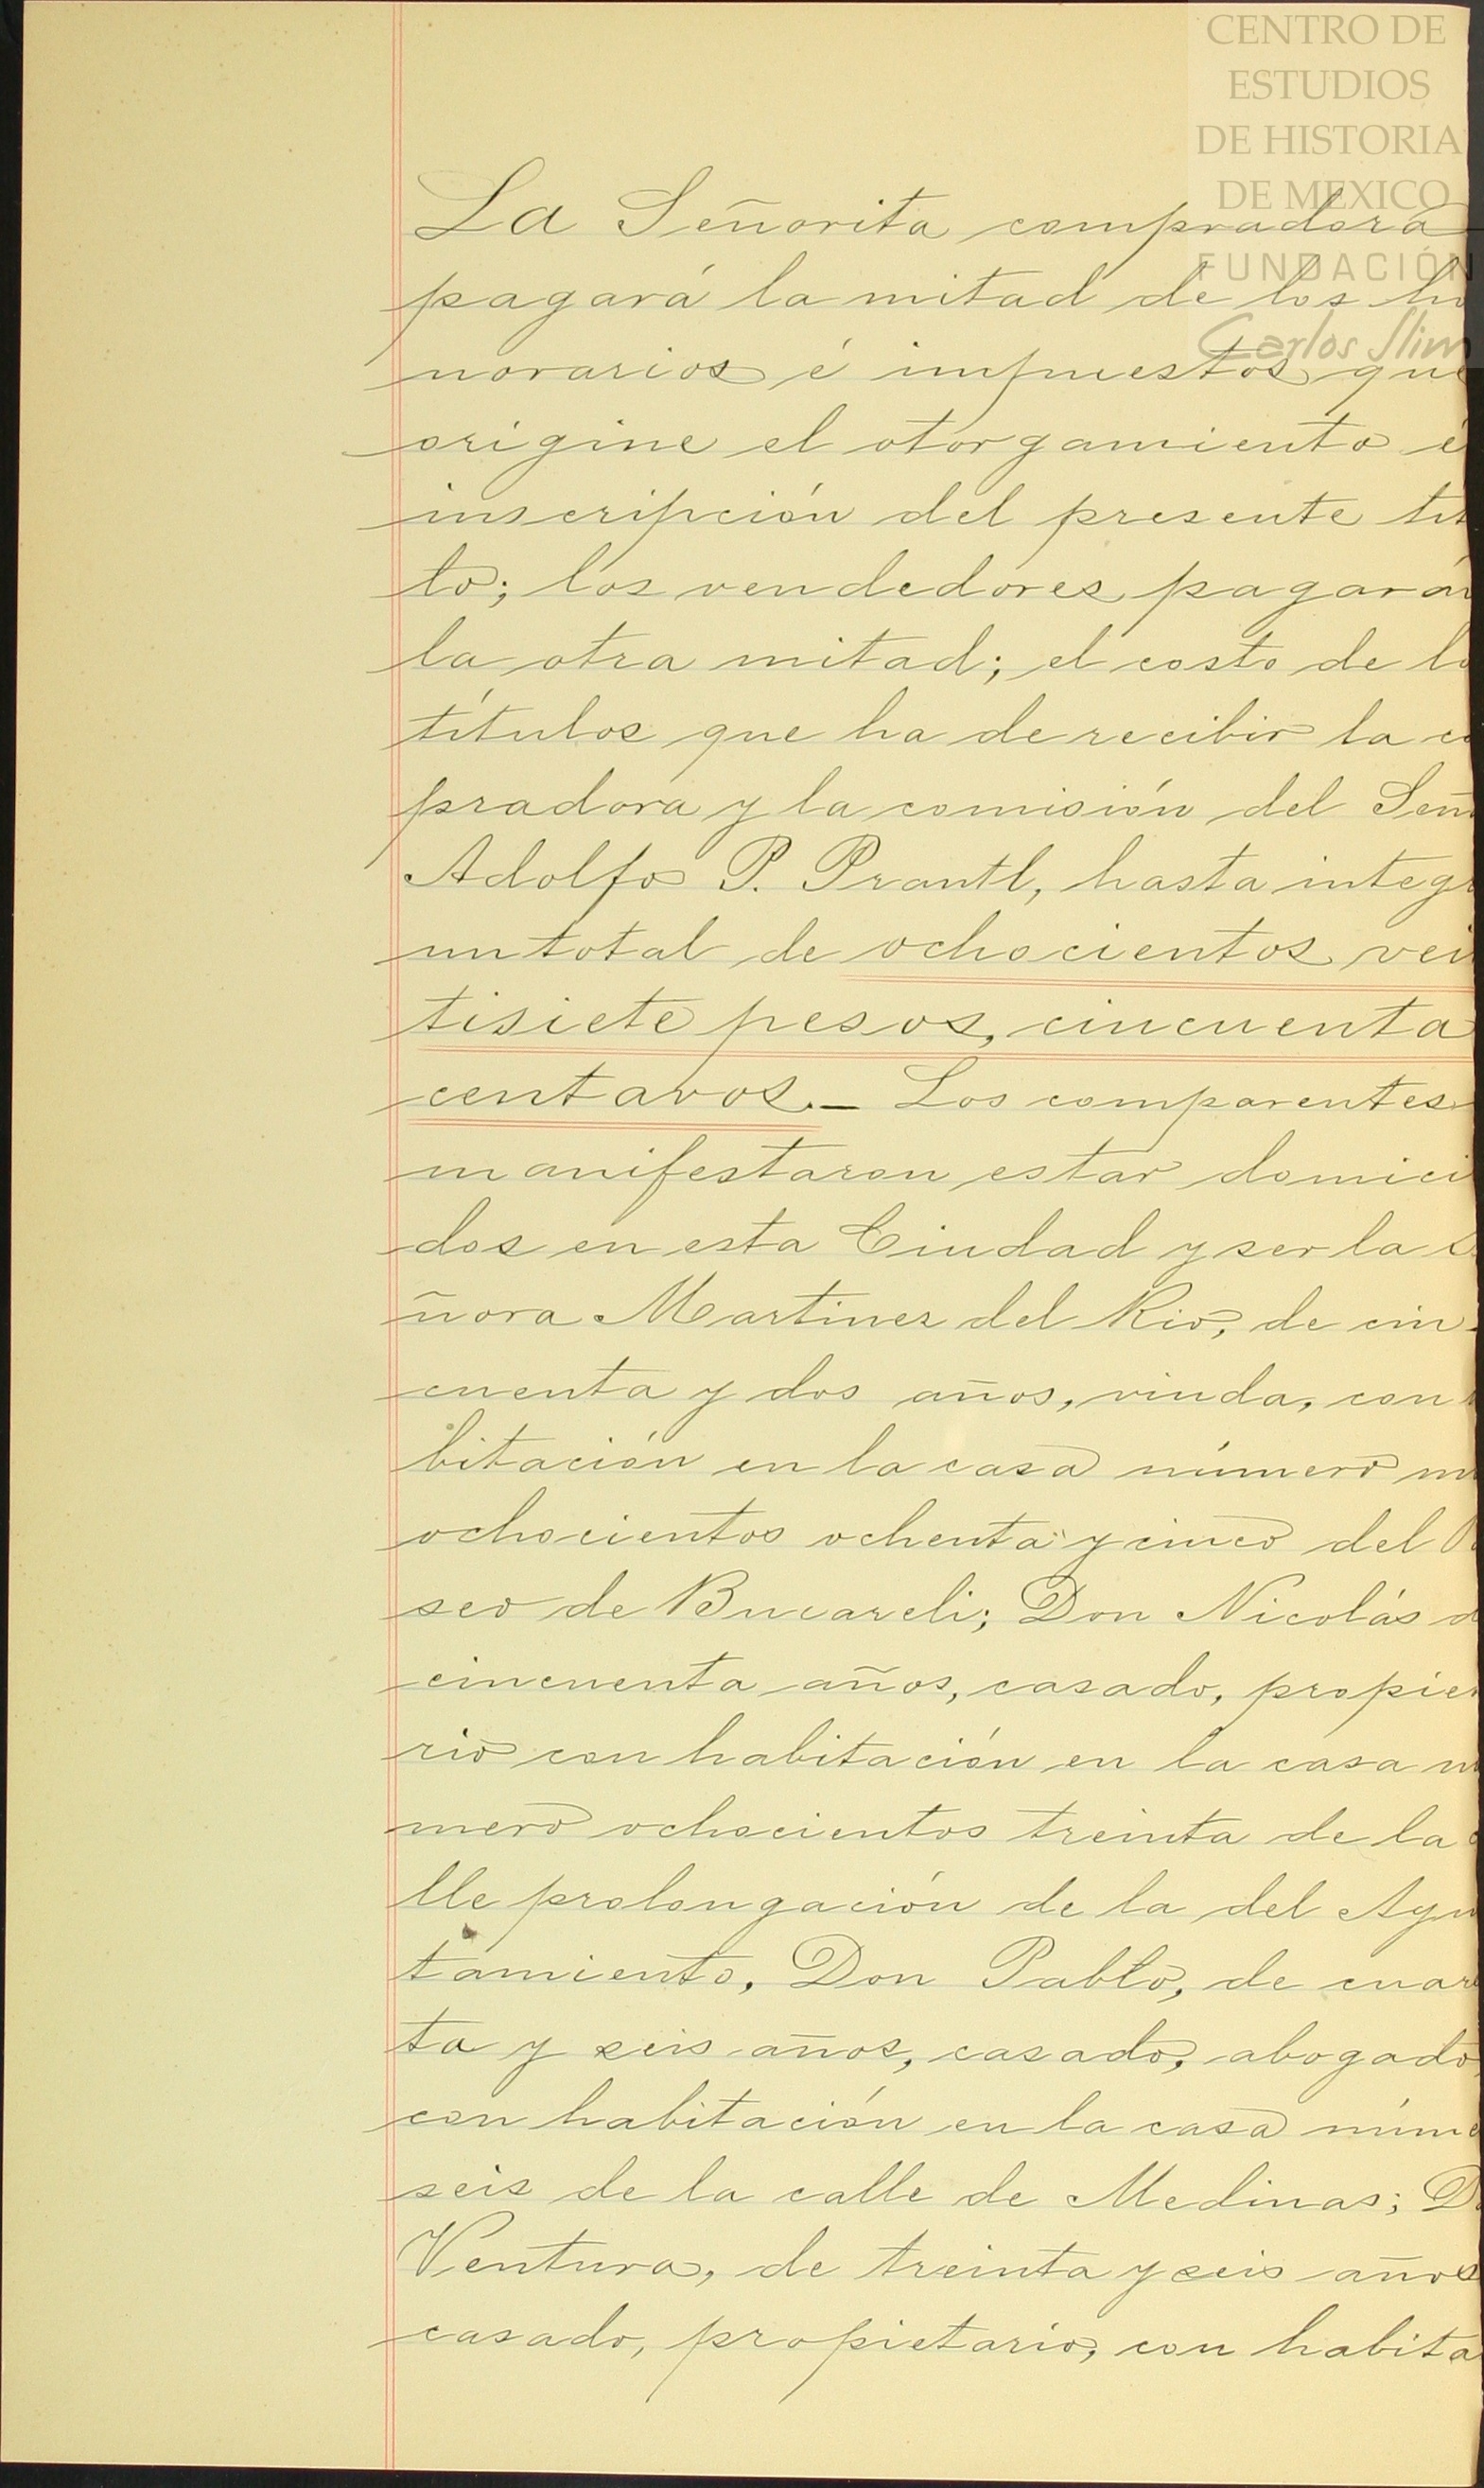 CENTRO DE
ESTUDIOS
DE HISTORIA
DE MEXICO
FUNDACIÓN
Carlos Slim
La Señorita compradora
pagará la mitad de los ho
norarios é impuestos que
origine el otorgamiento é
inscripción del presente tít
lo; los vendedores pagarán
la otra mitad; el costo de lo
títulos que ha de recibir la co
pradora y la comisión del Señ
Adolfo P. Prantl, hasta integr
un total de ochocientos vein
tisiete pesos, cincuenta
centavos.— Los comparentes
manifestaron estar domici
dos en esta Ciudad y ser la S
ñora Martinez del Rio, de cin-
cuenta y dos años, viuda, con
bitación en la casa número m
ochocientos ochenta y cinco del P
seo de Bucareli; Don Nicolás d
cincuenta años, casado, propie
rio con habitación en la casa nú
mero ochocientos treinta de la c
lle prolongación de la del Ayun
tamiento, Don Pablo, de cuare
ta y seis años, casado, abogado,
con habitación en la casa núme
seis de la calle de Medinas; Do
Ventura, de treinta y seis años
casado, propietario, con habita